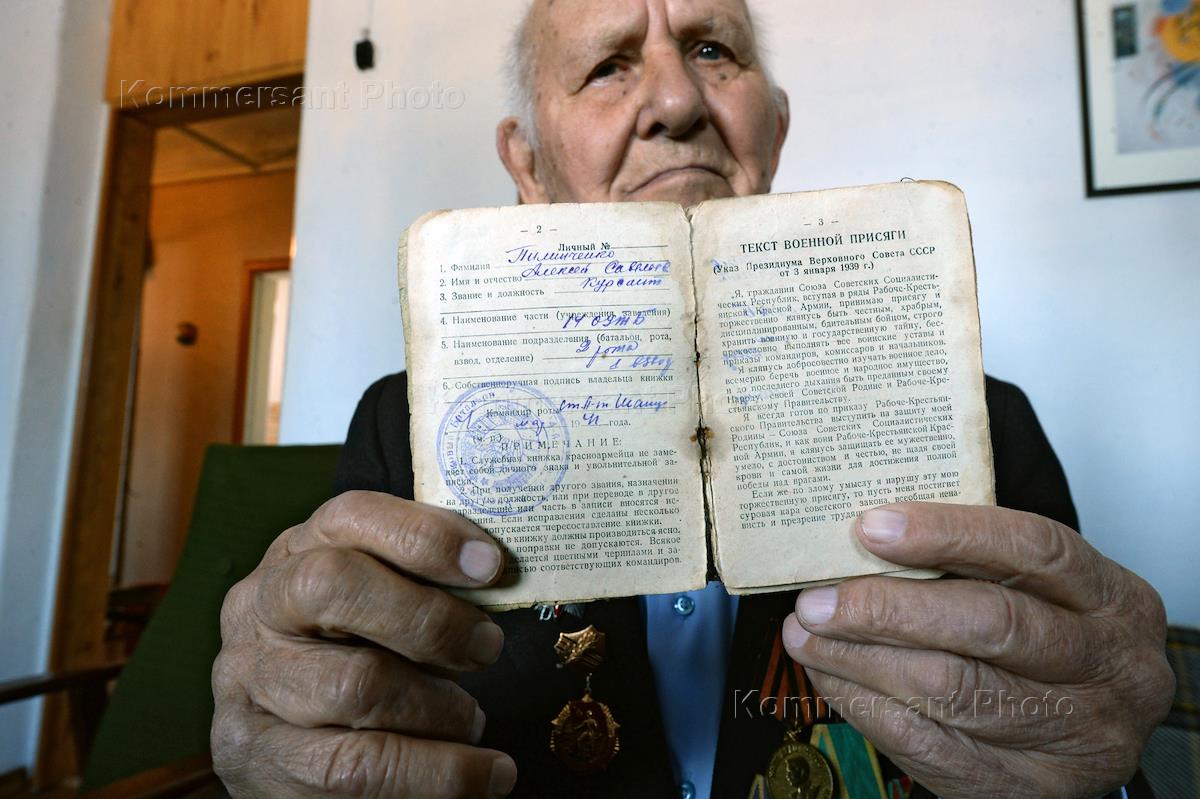 Kommersant Photo
— 2 —
Личный №
1. Фамилия Пилипченко
2. Имя и отчество Алексей Савельев
3. Звание и должность Курсант
4. Наименование части (учреждения, заведения)
14 ОУТБ
5. Наименование подразделения (батальон, рота,
взвод, отделение) 3 рота
1 взвод
6. Собственноручная подпись владельца книжки
Командир роты ст л-т
мар 1941 года.
(м. п.)
ПРИМЕЧАНИЕ:
1. Служебная книжка красноармейца не заме-
няет собой личного знака и увольнительной за-
писки.
2. При получении другого звания, назначении
на другую должность, или при переводе в другое
подразделение или часть в записи вносятся ис-
правления. Если исправления сделаны несколько
допускается пересоставление книжки.
в книжку должны производиться ясно.
поправки не допускаются. Всякое
делается цветными чернилами и за-
подписью соответствующих командиров.
— 3 —
ТЕКСТ ВОЕННОЙ ПРИСЯГИ
(Указ Президиума Верховного Совета СССР
от 3 января 1939 г.)
„Я, гражданин Союза Советских Социалисти-
ческих Республик, вступая в ряды Рабоче-Кресть-
янской Красной Армии, принимаю присягу и
торжественно клянусь быть честным, храбрым,
дисциплинированным, бдительным бойцом, строго
хранить военную и государственную тайну, бес-
прекословно выполнять все воинские уставы и
приказы командиров, комиссаров и начальников.
Я клянусь добросовестно изучать военное дело,
всемерно беречь военное и народное имущество,
и до последнего дыхания быть преданным своему
Народу, своей Советской Родине и Рабоче-Кре-
стьянскому Правительству.
Я всегда готов по приказу Рабоче-Крестьян-
ского Правительства выступить на защиту моей
Родины — Союза Советских Социалистических
Республик, и как воин Рабоче-Крестьянской Крас-
ной Армии, я клянусь защищать ее мужественно,
умело, с достоинством и честью, не щадя своей
крови и самой жизни для достижения полной
победы над врагами.
Если же по злому умыслу я нарушу эту мою
торжественную присягу, то пусть меня постигнет
суровая кара советского закона, всеобщая нена-
висть и презрение трудящихся
Kommersant Photo